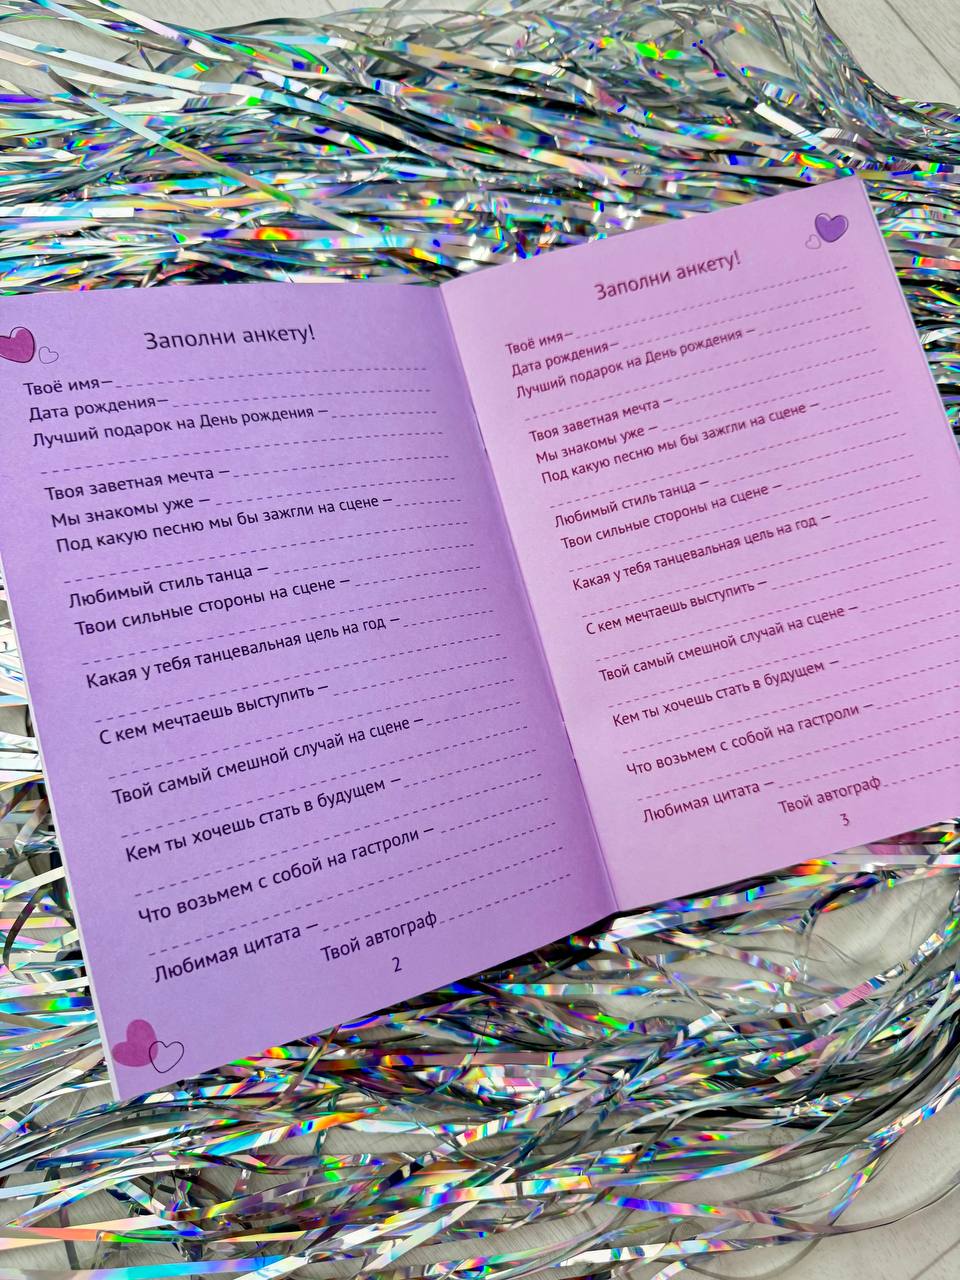 Заполни анкету!
Твоё имя—
Дата рождения—
Лучший подарок на День рождения —
Твоя заветная мечта —
Мы знакомы уже —
Под какую песню мы бы зажгли на сцене —
Любимый стиль танца —
Твои сильные стороны на сцене —
Какая у тебя танцевальная цель на год —
С кем мечтаешь выступить —
Твой самый смешной случай на сцене —
Кем ты хочешь стать в будущем —
Что возьмем с собой на гастроли —
Любимая цитата —
Твой автограф
2
Заполни анкету!
Твоё имя—
Дата рождения—
Лучший подарок на День рождения —
Твоя заветная мечта —
Мы знакомы уже —
Под какую песню мы бы зажгли на сцене —
Любимый стиль танца —
Твои сильные стороны на сцене —
Какая у тебя танцевальная цель на год —
С кем мечтаешь выступить —
Твой самый смешной случай на сцене —
Кем ты хочешь стать в будущем —
Что возьмем с собой на гастроли —
Любимая цитата —
Твой автограф
3